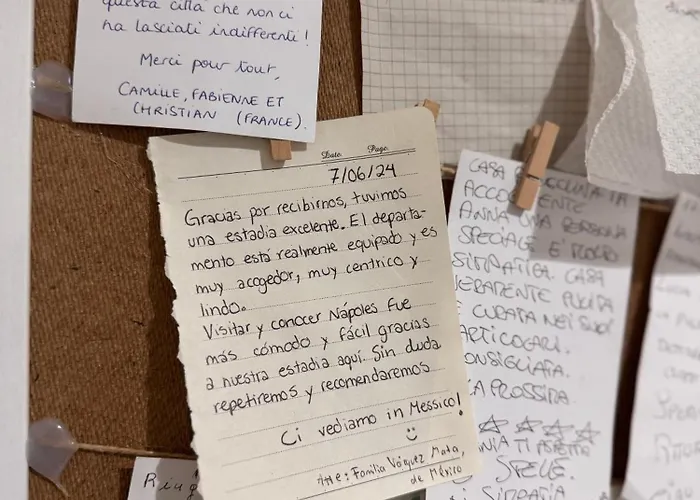 questa città che non ci
ha lasciati indifferenti!
Merci pour tout,
CAMILLE, FABIENNE ET
CHRISTIAN (FRANCE).
Date Page
7/06/24
Gracias por recibirnos, tuvimos
una estadia excelente. El departa-
mento está realmente equipado y es
muy acogedor, muy centrico y
lindo.
Visitar y conocer Nápoles fue
más cómodo y fácil gracias
a nuestra estadia aquí. Sin duda
repetiremos y recomendaremos
Ci vediamo in Messico!
Atte: Familia Vázquez Mata,
de México
CASA
ACCOGLIENTE
ANNA UNA PERSONA
SPECIALE E' MOLTO
SIMPATICA. CASA
VERAMENTE PULITA
E CURATA NEI SUOI
PARTICOLARI.
CONSIGLIATA.
PROSSIMA
TI ASPETTA
STELLE
SIMPATIA